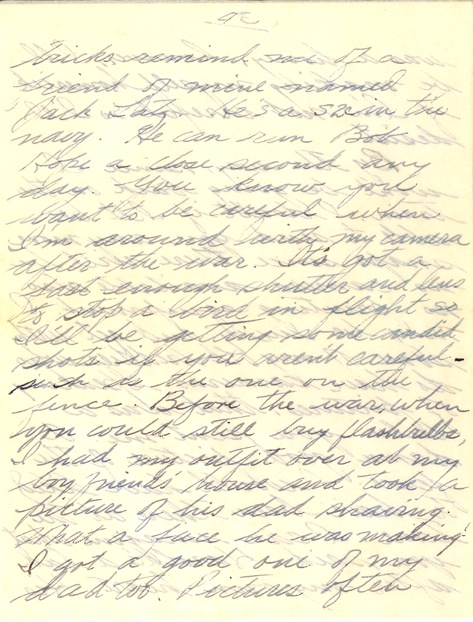 tricks remind me of a
friend of mine named
Jack Latz. He's a S2c in the
navy. He can run Bob
Hope a close second any
day. You know you
want to be careful when
I'm around with my camera
after the war. It's got a
fast enough shutter and lens
to stop a bird in flight so
I'll be getting some candid
shots if you aren't careful-
such as the one on the
fence. Before the war, when
you could still buy flashbulbs,
I had my outfit over at my
boy friends house and took a
picture of his dad shaving.
What a face he was making!
I got a good one of my
dad too. Pictures often